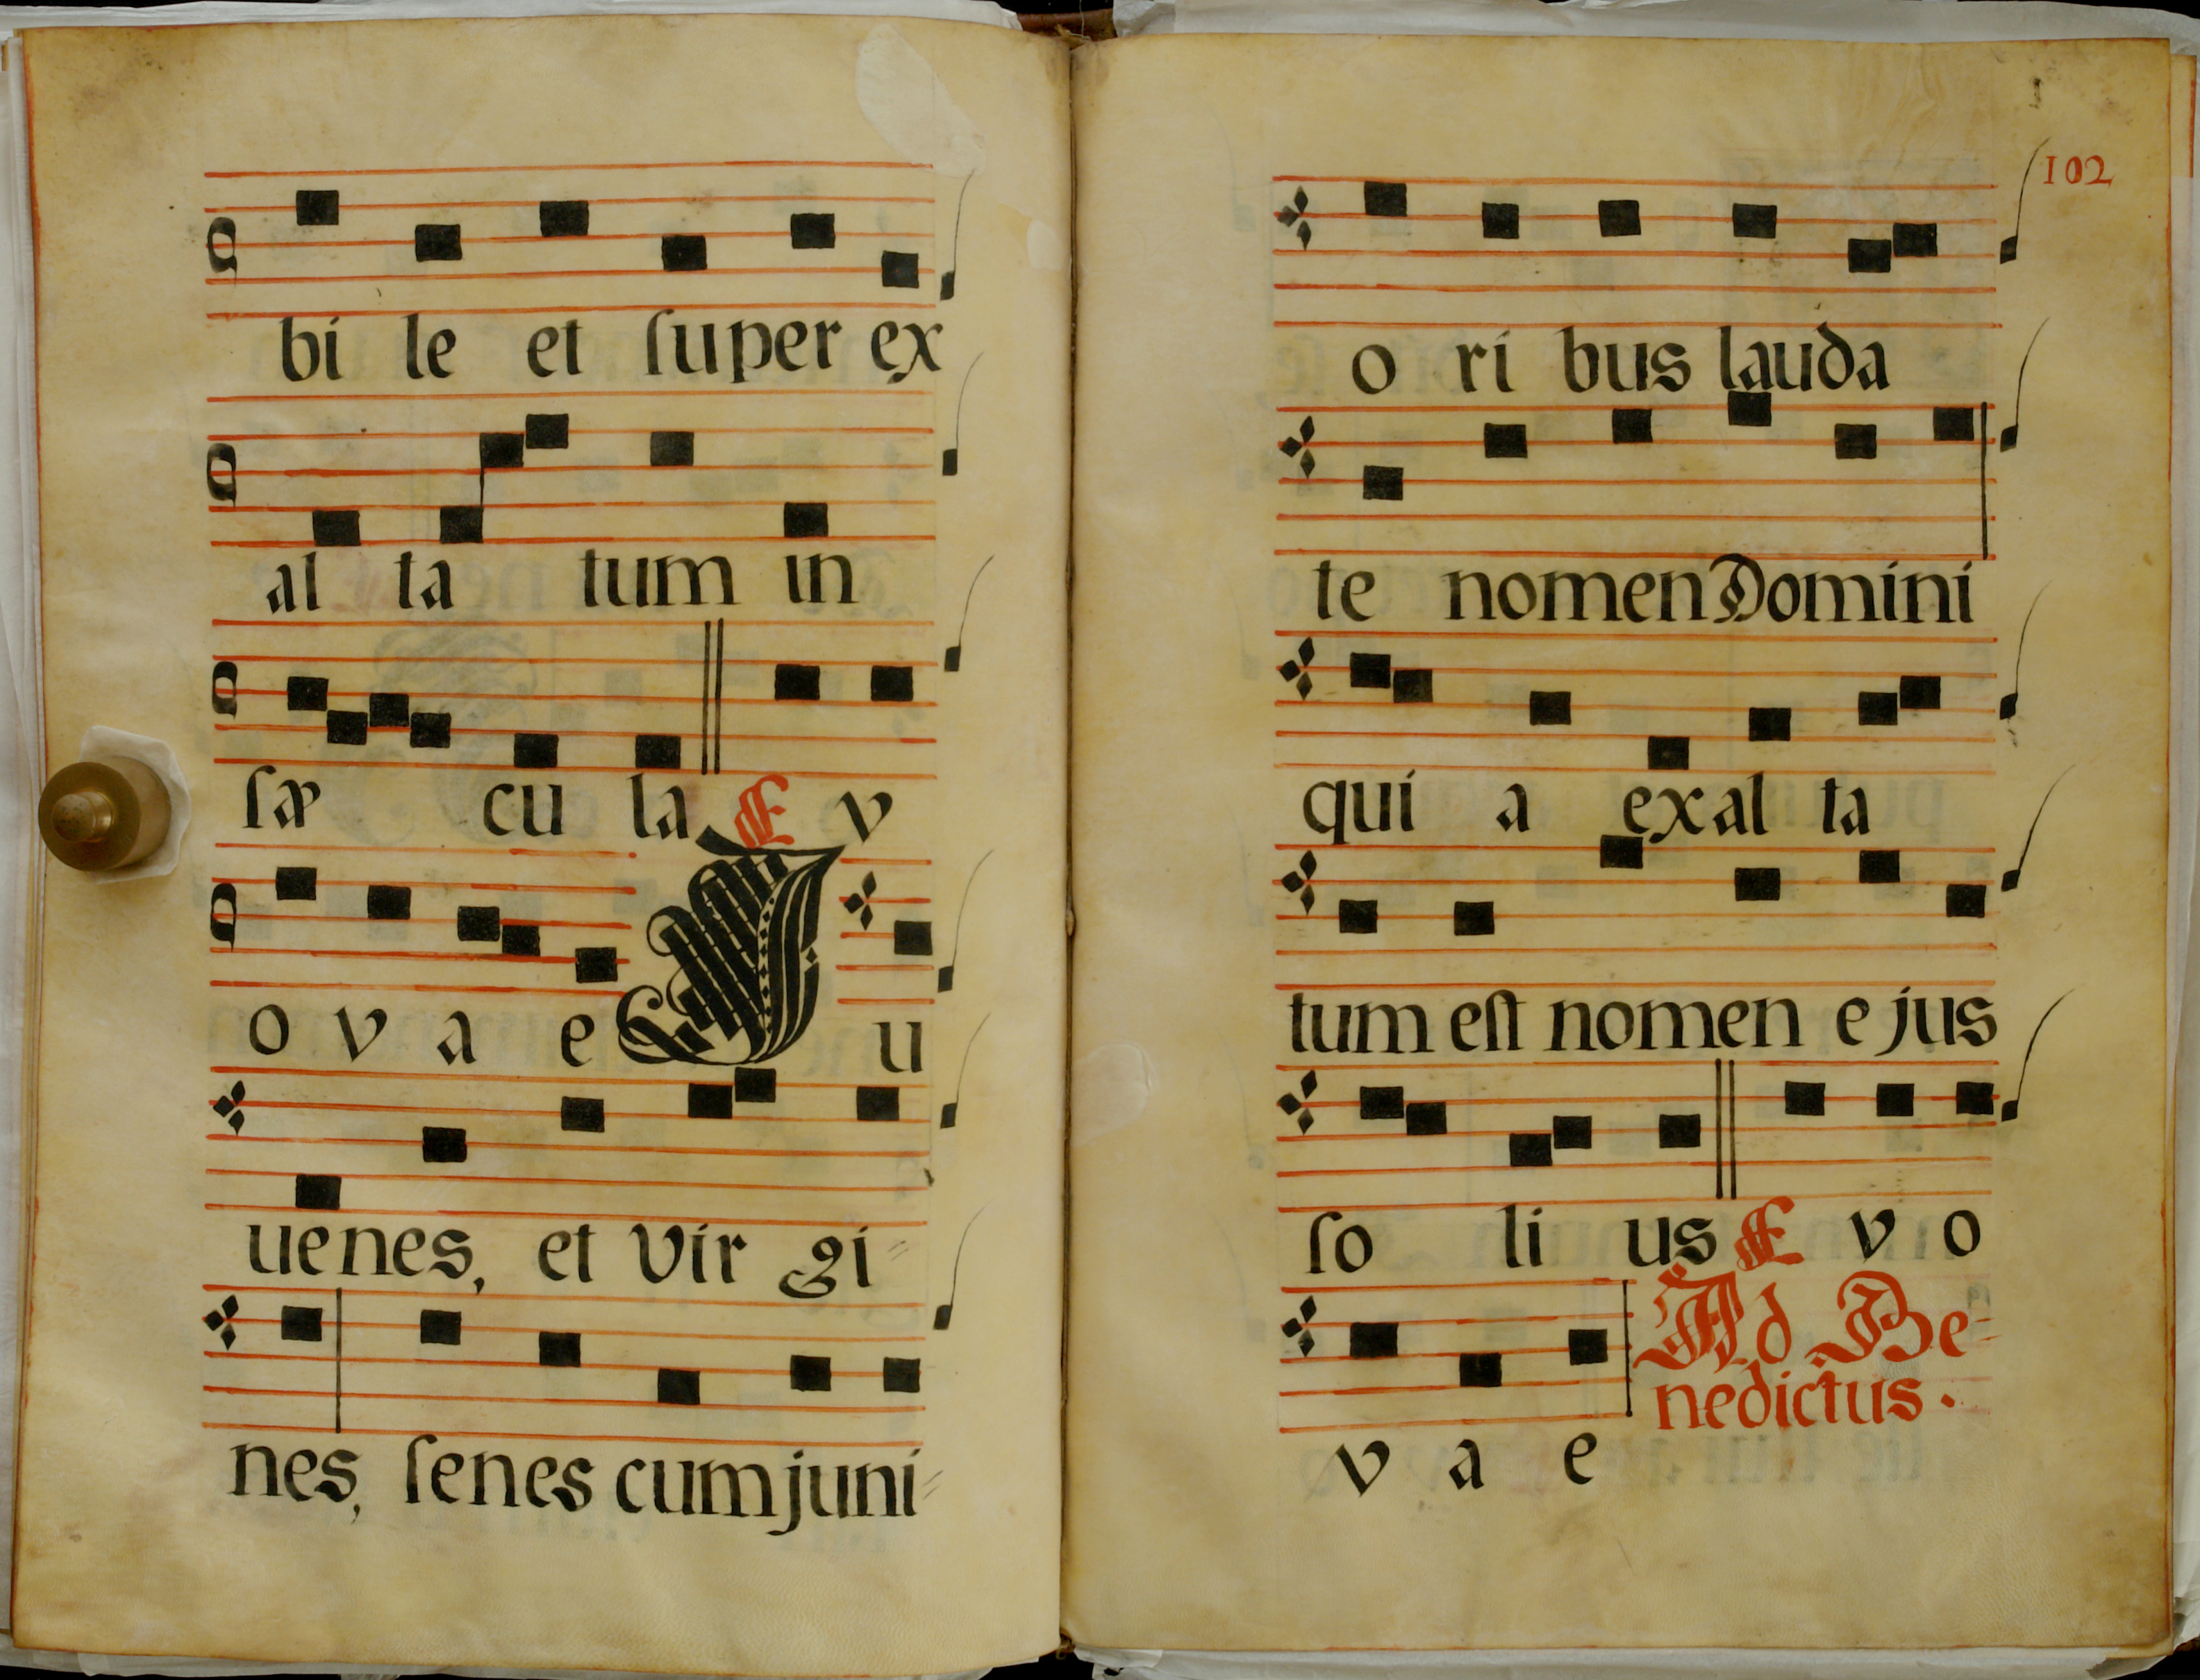 bi le et ſuper ex
al ta tum in
ſæ cu la E v
o v a e J u
uenes, et Vir gi=
nes, ſenes cum juni=
102
o ri bus lauda
te nomen Domini
qui a exal ta
tum eſt nomen ejus
ſo li us E v o
v a e Ad Be=
nedictus.